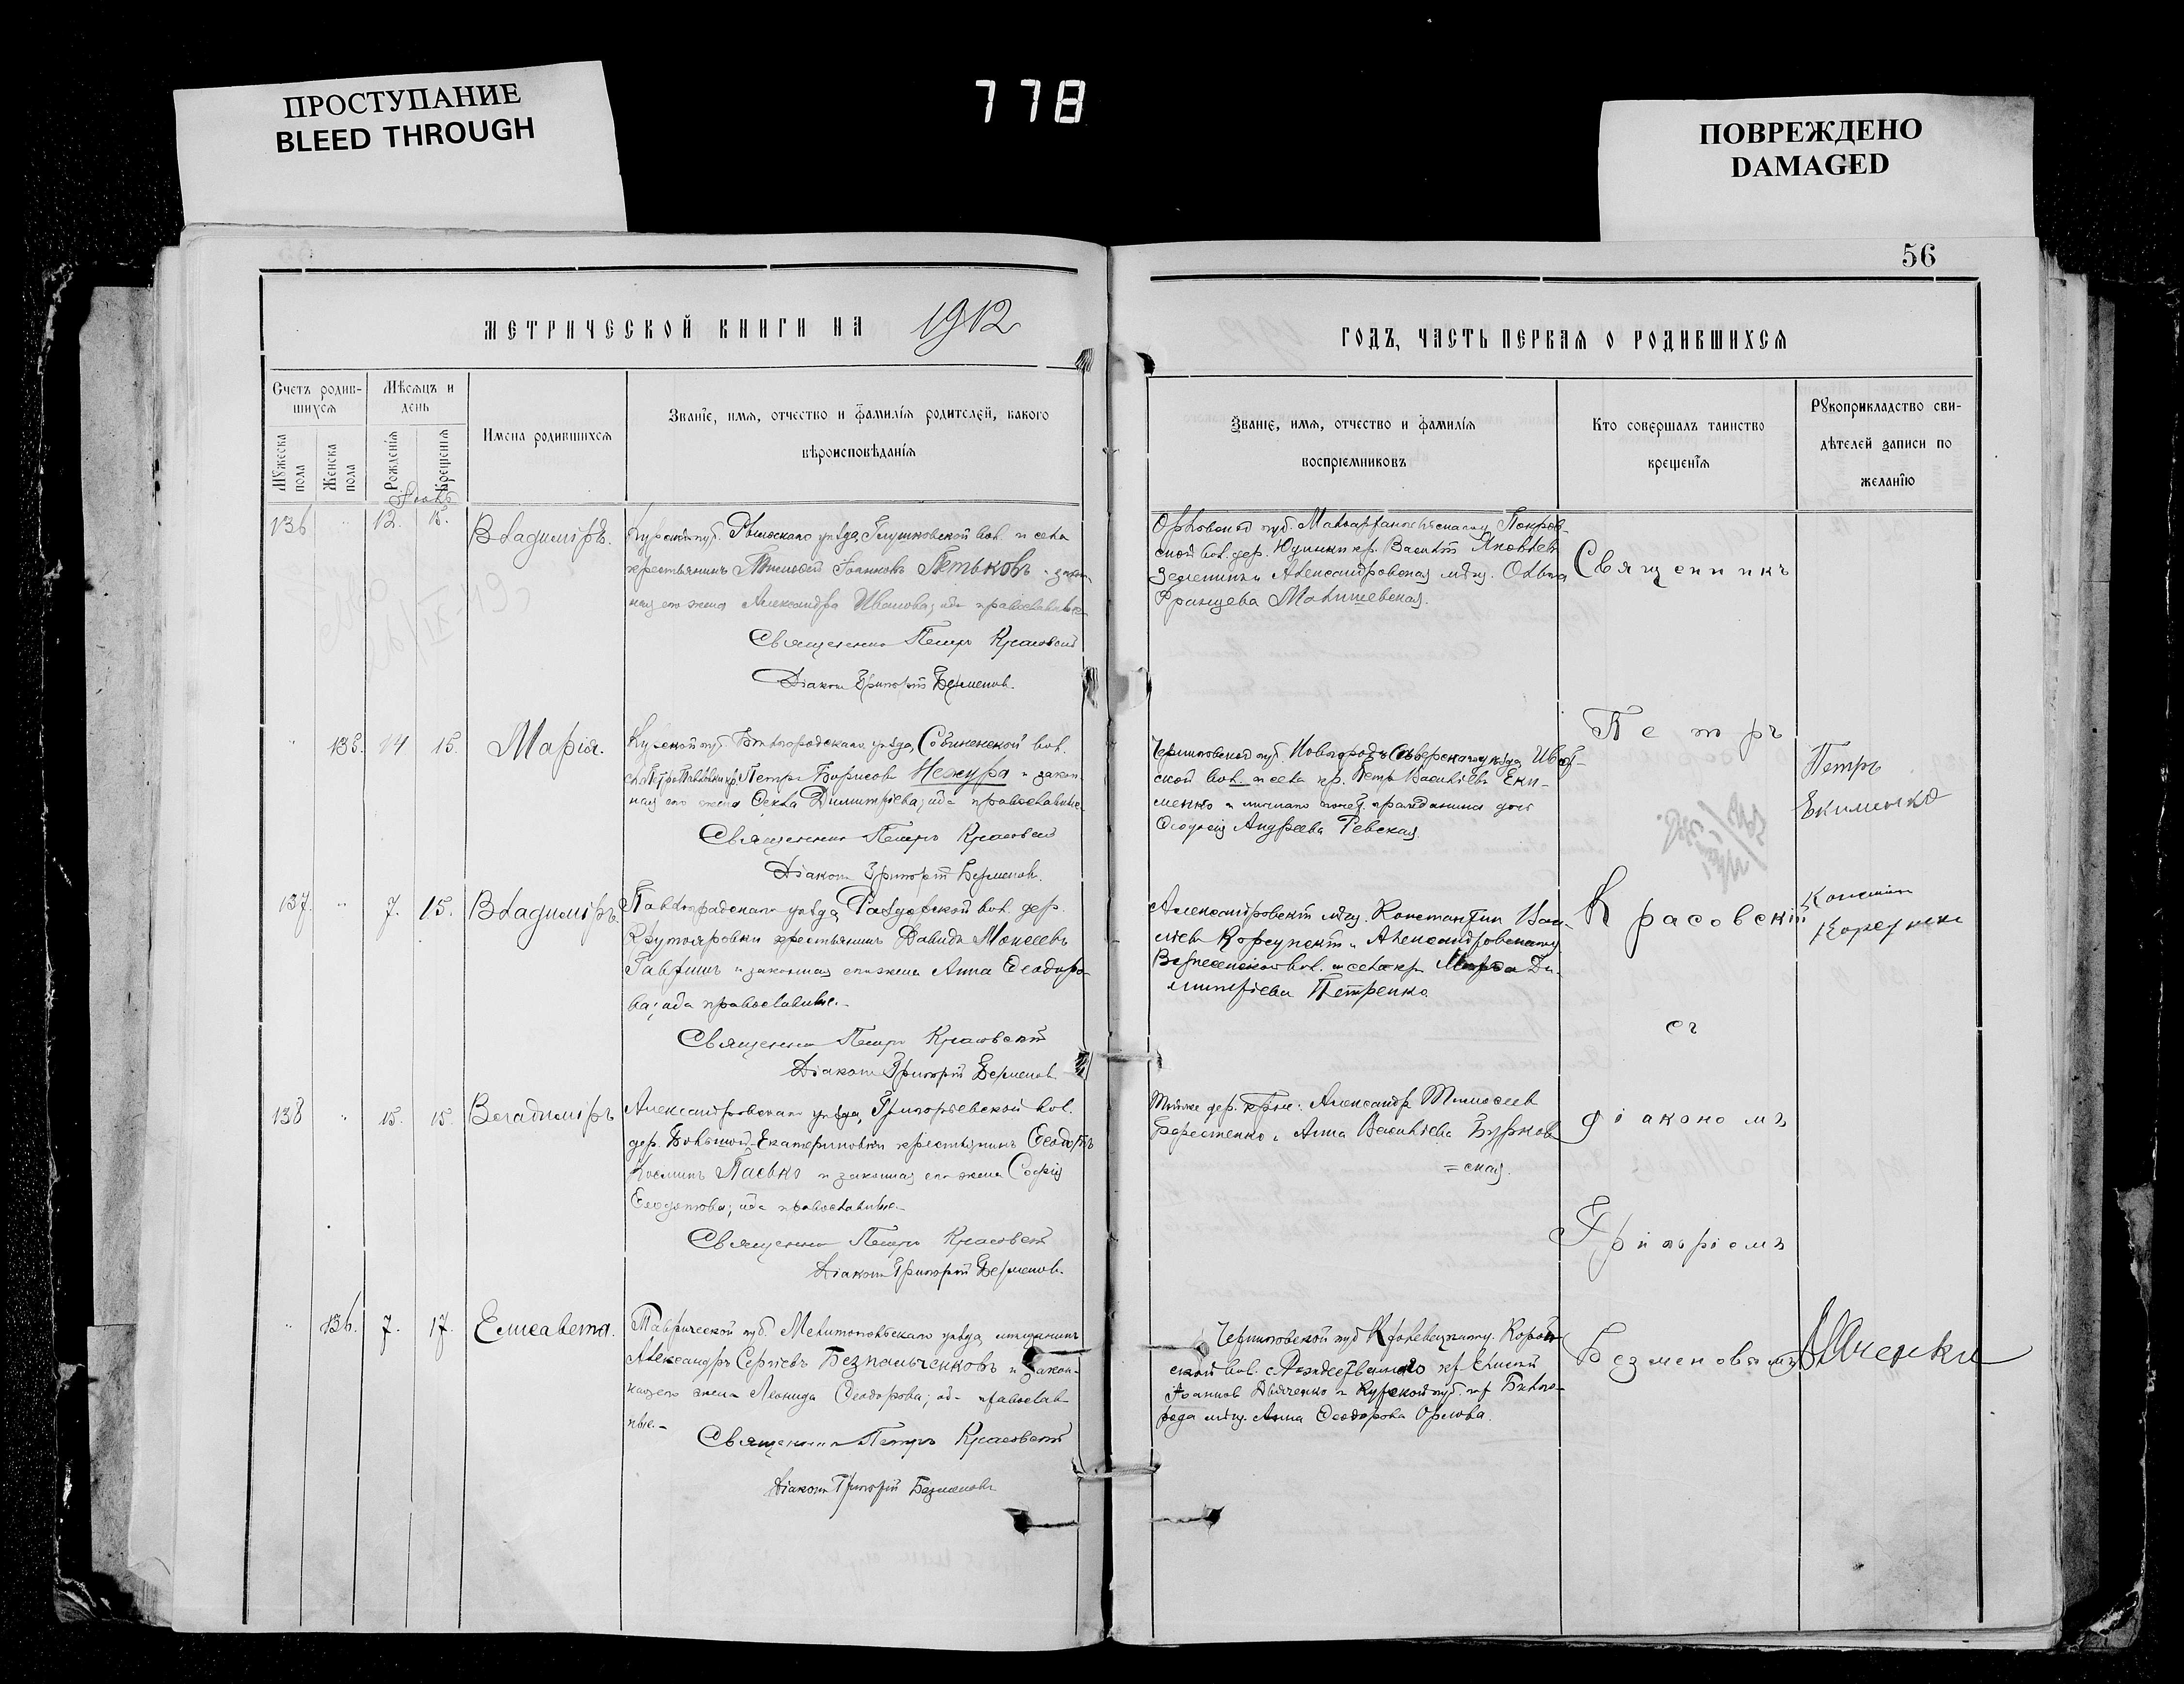 ПРОСТУПАНИЕ
BLEED THROUGH
778
ПОВРЕЖДЕНО
DAMAGED
56
МЕТРИЧЕСКОЙ КНИГИ НА 1912
ГОДЪ, ЧАСТЬ ПЕРВАЯ О РОДИВШИХСЯ
Счетъ родив-
шихся
Мужеска пола
Женска пола
Мѣсяцъ и
день
Рожденія
Крещенія
Имена родившихся
Званіе, имя, отчество и фамилія родителей, какого
вѣроисповѣданія
Званіе, имя, отчество и фамилія
воспріемниковъ
Кто совершалъ таинство
крещенія
Рукоприкладство сви-
дѣтелей записи по
желанію
136 " 12. 15. Владиміръ.
Курской губ. Рыльскаго уѣзда, Глушковской вол. и села
крестьянинъ Іоанновъ Петьковъ и закон-
ная его жена Александра Иванова; оба православные
Священникъ Петръ Красовскій
Діаконъ Григорій Безменовъ.
Орловской губ. Малоархангельскаго у. Покров-
ской вол. дер. Юдинки кр. Василій Яковлевъ
и Александровская мѣщ. Ольга
Францева Малишевская.
" 135. 14 15. Марія.
Курской губ. Бѣлгородскаго уѣзда, вол.
кр. Петръ Борисовъ Нежура и закон-
ная его жена Ѳекла Димитріева; оба православные
Священникъ Петръ Красовскій
Діаконъ Григорій Безменовъ.
Черниговской губ. Новгородъ-Сѣверскаго уѣзда
ской вол. и села кр. Петръ Васильевъ Еки-
менко и личнаго почет. гражданина дочь
Ѳеодосія Андреева Ревская.
Петръ
Екименко
137. " 7. 15. Владиміръ
Павлоградскаго уѣзда, Раздорской вол. дер.
Крутояровки крестьянинъ Давидъ Моисеевъ
и законная его жена Анна Ѳеодоро-
ва; оба православные.
Священникъ Петръ Красовскій
Діаконъ Григорій Безменовъ
Александровскій мѣщ. Константинъ
и Александровскаго у.
Вознесенской вол. и села кр. Марѳа Ди-
митріева Петренко.
138 " 15. 15. Владиміръ
Александровскаго уѣзда, Григорьевской вол.
дер. Большой-Екатериновки крестьянинъ Ѳеодоръ
Косминъ Пасько и законная его жена Софія
оба православные
Священникъ Петръ Красовскій
Діаконъ Григорій Безменовъ
Тойже дер. кр-не: Александръ Тимоѳеевъ
и Анна Васильева Бурков-
=ская.
" 136. 7. 17. Елисавета.
Таврической губ. Мелитопольскаго уѣзда, мѣщанинъ
Александръ Сергіевъ Безпальченковъ и закон-
ная его жена Леонида Ѳеодорова; оба православ-
ные.
Священникъ Петръ Красовскій
Діаконъ Григорій Безменовъ
Черниговской губ. Кролевецкаго у. Короп-
ской вол. с. Рождественскаго кр. Елисей
Іоанновъ Дьяченко и Курской губ. гор. Бѣлго-
рода мѣщ. Анна Ѳеодорова Орлова.
Священникъ
Петръ
Красовскій
съ
діакономъ
Григоріемъ
Безменовымъ